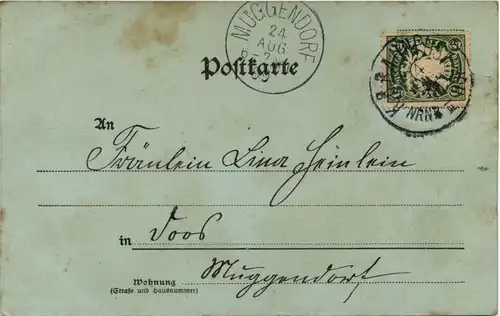 MUGGENDORF
24
AUG
Postkarte
An
Fräulein Lina Heinlein
in Doos
Muggendorf
Wohnung
(Straße und Hausnummer)